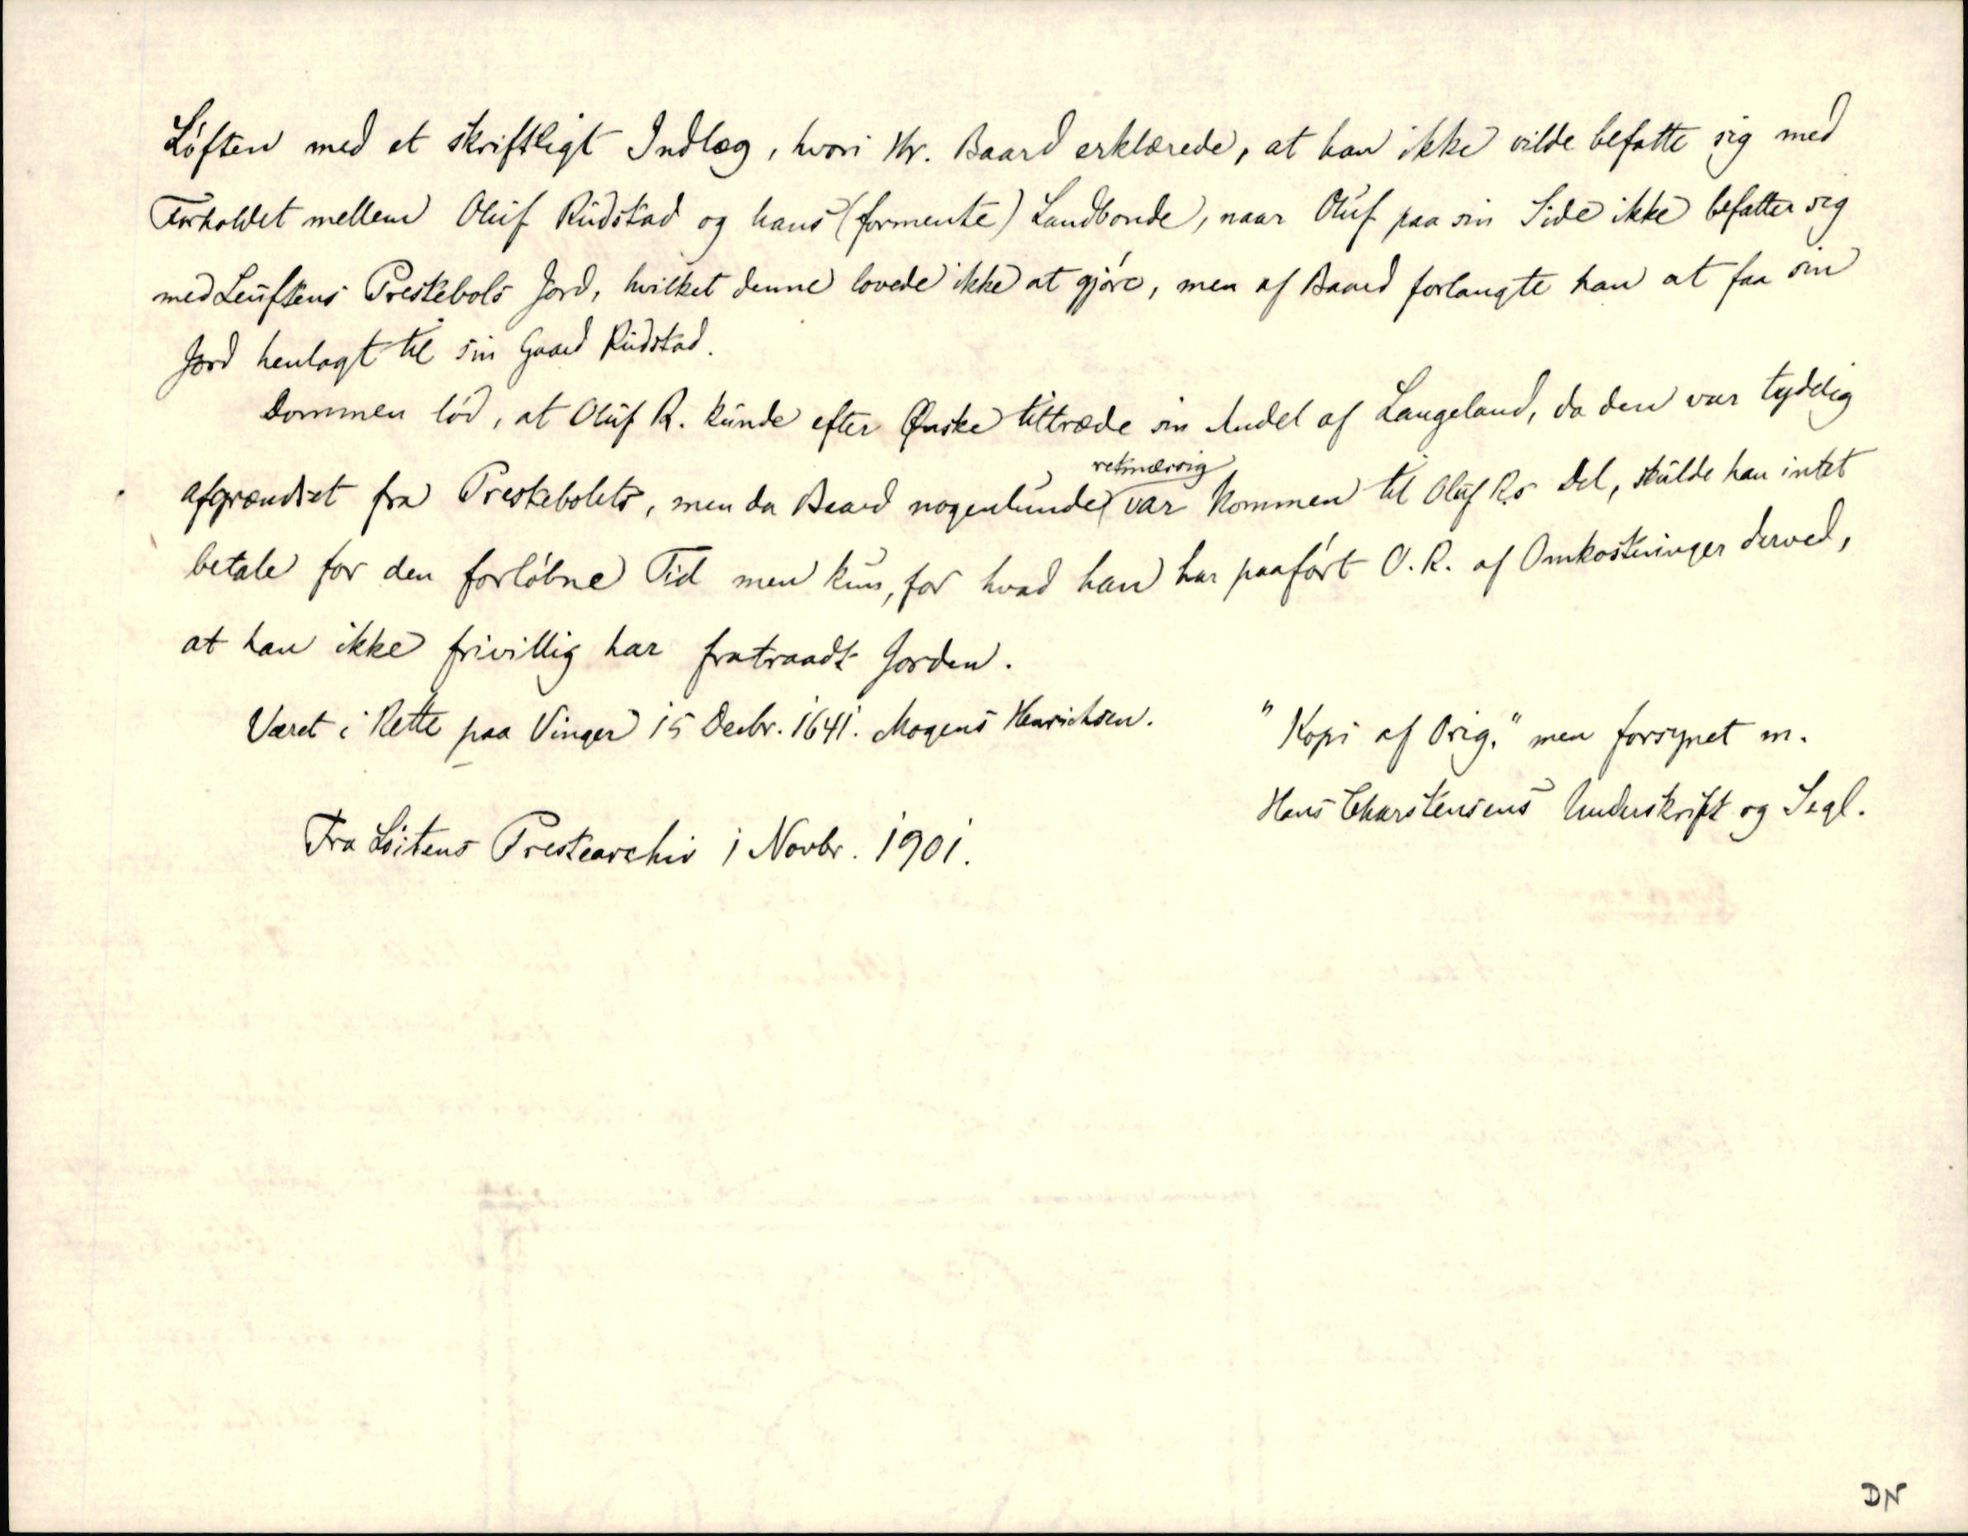 Löften med et skriftligt Indlæg, hvori Hr. Baard erklærede, at han ikke vilde befatte sig med
Forholdet mellem Oluf Rudstad og hans (formente) Landbonde, naar Oluf paa sin Side ikke befatter sig
med Leuftens Prestebols Jord, hvilket denne lovede ikke at gjöre, men af Baard forlangte han at faa sin
Jord henlagt til sin Gaard Rudstad.
Dommen löd, at Oluf R. kunde efter Ønske tiltræde sin Andel af Langeland, da den var tydelig
afgrændset fra Prestebolets, men da Baard nogenlunde retmæssig var kommen til Oluf R.s Del, skulde han intet
betale for den forløbne Tid men kun, for hvad han har paaført O. R. af Omkostninger derved,
at han ikke frivillig har fratraadt Jorden.
Været i Rette paa Vinger 15 Decbr. 1641. Mogens Henrichsen.
"Kopi af Orig." men forsynet m.
Hans Charstensens Underskrift og Segl.
Fra Löitens Prestearchiv i Novbr. 1901.
DN